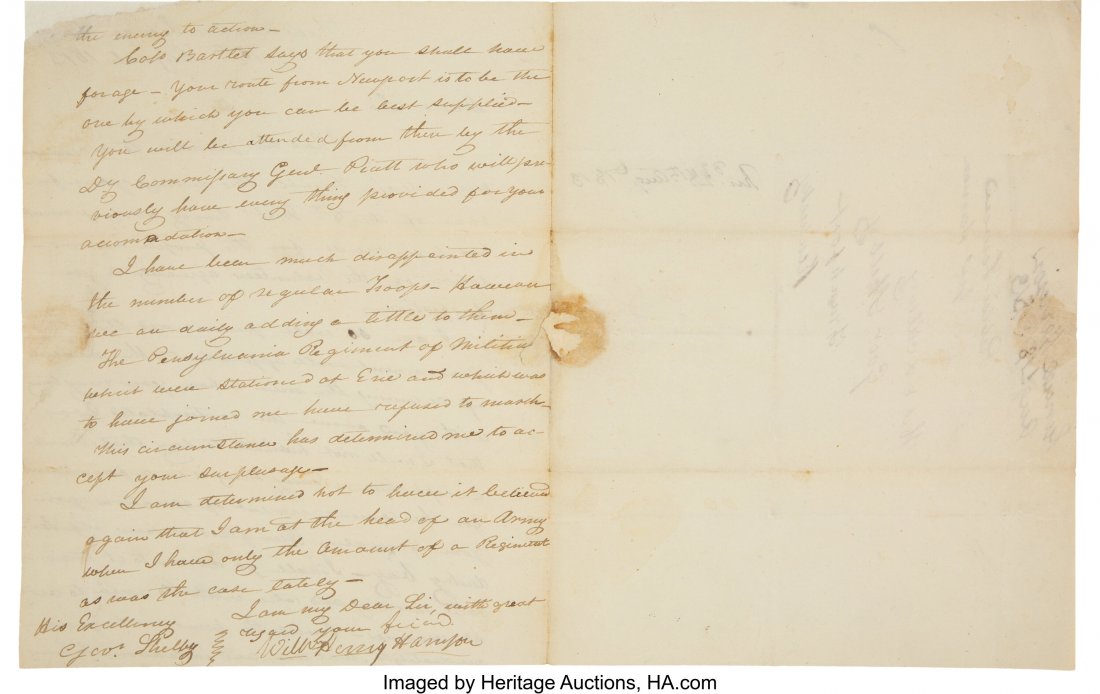 the enemy to action —
Colo Bartlet says that you shall have
forage — Your route from Newport is to be the
one by which you can be best supplied —
You will be attended from there by the
Dy Commissary Genl Piatt who will pre-
viously have every thing provided for your
accomodation —
I have been much disappointed in
the number of regular Troops — However
we are daily adding a little to them —
The Pensylvania Regiment of Militia
which were stationed at Erie and which was
to have joined me have refused to march —
This circumstance has determined me to ac-
cept your surplusage —
I am determined not to have it believed
again that I am at the head of an Army
when I have only the amount of a Regiment
as was the case lately —
I am my Dear Sir, with great
regard your friend
His Excellency
Govr Shelby
Willm Henry Harrison
Imaged by Heritage Auctions, HA.com